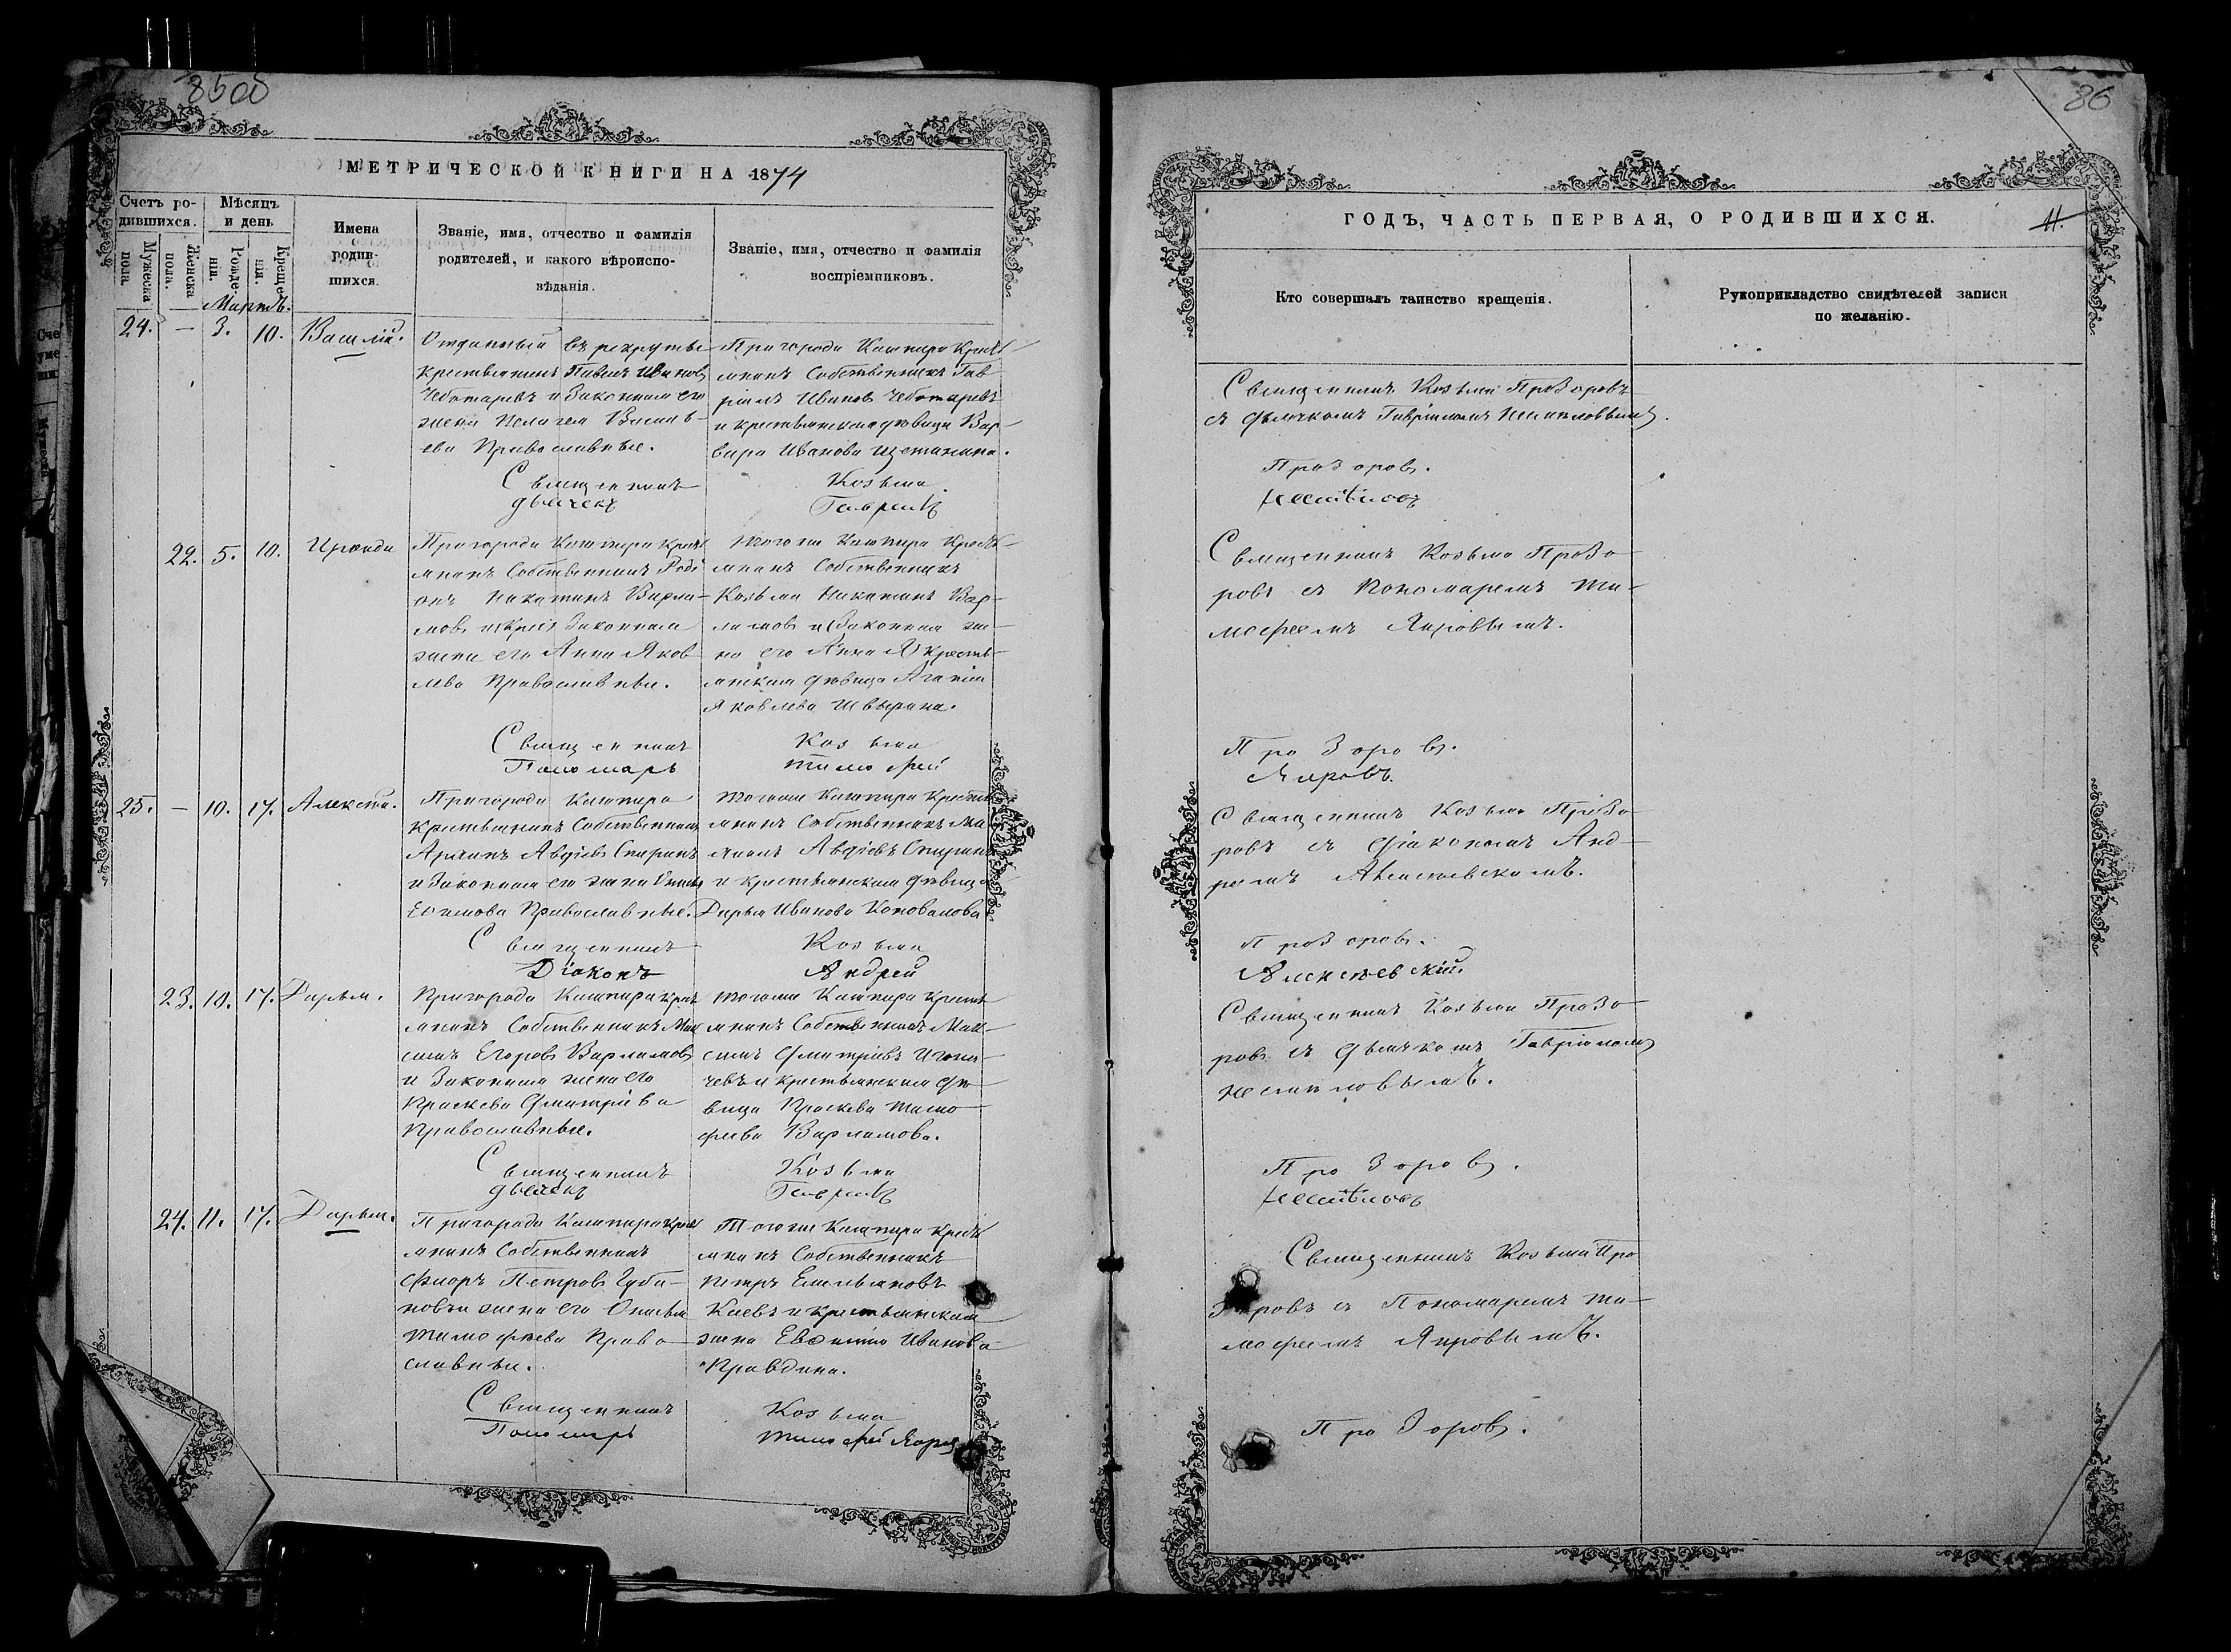 85об
МЕТРИЧЕСКОЙ КНИГИ НА 1874
Счетъ ро-
дившихся.
Мужеска
пола.
Женска
пола.
Мѣсяцъ
и день
Рожде-
нія.
Креще-
нія.
Имена
родив-
шихся.
Званіе, имя, отчество и фамилія
родителей, и какого вѣроиспо-
вѣданія.
Званіе, имя, отчество и фамилія
воспріемниковъ.
Мартъ.
24. — 3. 10. Василій.
Отданный въ рекруты
крестьянинъ Павелъ Ивановъ
Чеботаревъ и Законная его
жена Пелагея Василь-
ева Православные.
Пригорода Кашпира Крест
янинъ Собственникъ Гав
ріилъ Ивановъ Чеботаревъ
и крестьянская дѣвица Вар-
вара Иванова Щетинина.
Священникъ Козьма
дьячекъ Гавріилъ
22. 5. 10. Ираида
Пригорода Кашпира крест
янинъ Собственникъ Роді
онъ Никитинъ Варла-
мовъ Законная
жена его Анна Яков
лева Православные.
Тогоже Кашпира Крест-
янинъ Собственникъ
Козьма Никитинъ Вар-
ламовъ Законная же-
на его Анна крестъ-
янская дѣвица Агапія
Яковлева Швырина.
Священникъ Козьма
Пономарь Тимофей
25. — 10. 17. Алексѣй.
Пригорода Кашпира
Крестьянинъ Собственникъ
Архипъ Авдіевъ Спиринъ
и Законная его жена
Екимова Православные.
Тогоже Кашпира Крестъ
янинъ Собственникъ
Авдіевъ Спиринъ
и крестьянская дѣвица
Дарья Иванова Коновалова
Священникъ Козьма
Діаконъ Андрей
23. 10. 17. Дарья.
Пригорода Кашпира крест
янинъ Собственникъ Мак
симъ Егоровъ Варламовъ
и Законная жена его
Праскева Дмитріева
Православные.
Тогоже Кашпира крестъ
янинъ Собственникъ Мак-
симъ Дмитріевъ
чевъ и крестьянская дѣ-
вица Праскева Тимо
феева Варламова.
Священникъ Козьма
дьячекъ Гавріилъ
24. 11. 17. Дарья.
Пригорода Кашпира Крест
янинъ Собственникъ
Флоръ Петровъ Губа-
новъ и жена его
Тимофѣева Право-
славные.
Тогоже Кашпира Крест
янинъ Собственникъ
Петръ Емельяновъ
Каевъ и крестьянская
жена Евфимія Иванова
Правдина.
Священникъ Козьма
Пономарь Тимофей Яировъ
86
ГОДЪ, ЧАСТЬ ПЕРВАЯ, О РОДИВШИХСЯ.
11.
Кто совершалъ таинство крещенія.
Рукоприкладство свидѣтелей записи
по желанію.
Священникъ Козьма Прозоровъ
съ дьячкомъ Гавріиломъ
Прозоровъ.
Священникъ Козьма Прозо-
ровъ съ Пономаремъ Ти-
мофеемъ Яировымъ.
Прозоровъ.
Яировъ.
Священникъ Козьма Прозо-
ровъ съ діакономъ Анд-
реемъ Алексѣевскимъ.
Прозоровъ.
Алексѣевскій.
Священникъ Козьма Прозо-
ровъ съ дьячкомъ Гавріиломъ
Прозоровъ.
Священникъ Козьма Про
зоровъ съ Пономаремъ Ти-
мофеемъ Яировымъ.
Прозоровъ.